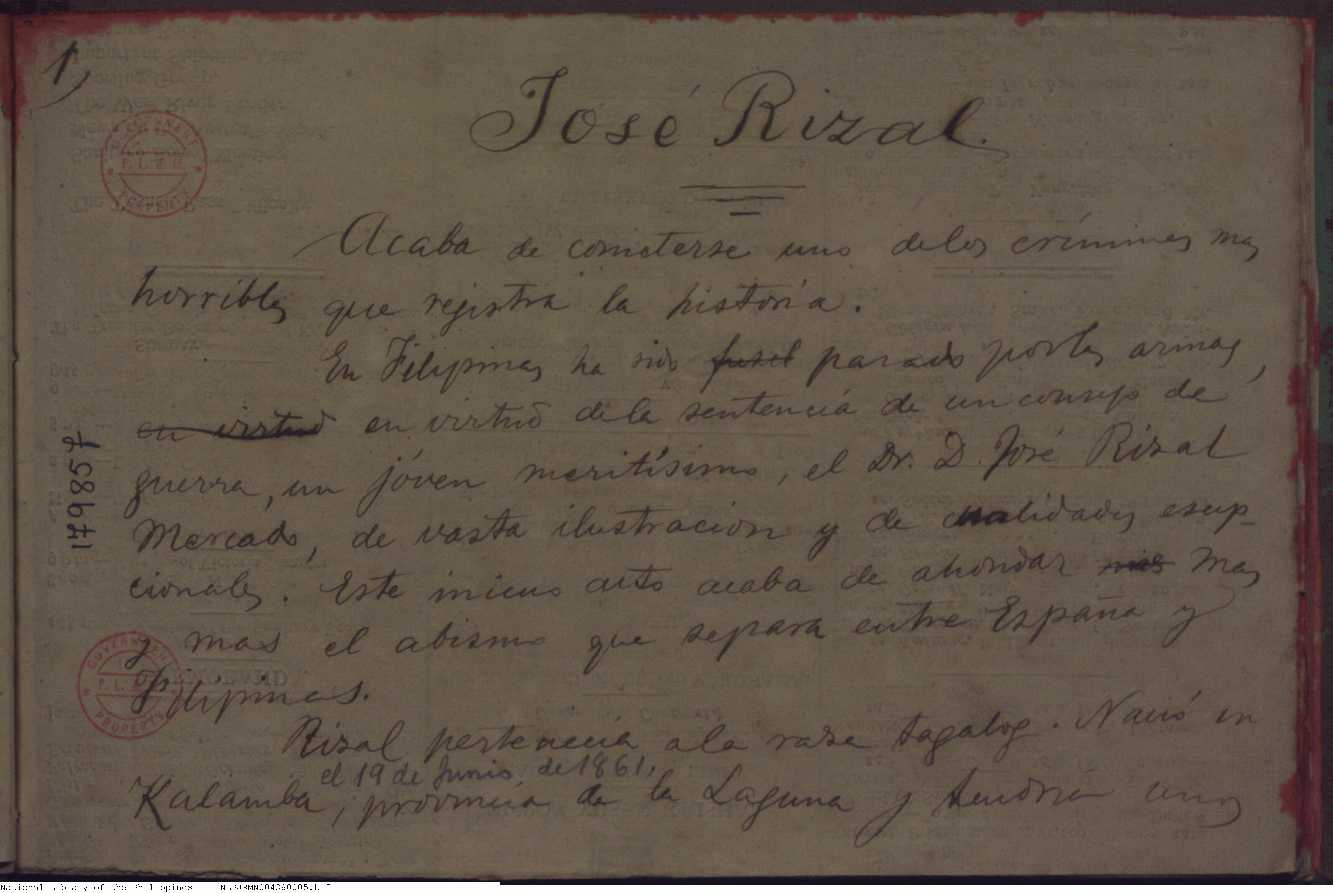 1,
José Rizal.
Acaba de cometerse uno de los crímines mas
horribles que registra la historia.
En Filipinas ha sido fusil parado por las armas,
en virtud en virtud de la sentencia de un consejo de
guerra, un jóven meritísimo, el Dr. D. José Rizal
Mercado, de vasta ilustracion y de cualidades escep-
cionales. Este inicuo acto acaba de ahondar mas mas
y mas el abismo que separa entre España y
Filipinas.
Rizal pertenecía a la raza tagalog. Nació en
el 19 de Junio de 1861,
Kalamba, provincia de la Laguna y tendría unos
GOVERNMENT
PROPERTY
GOVERNMENT
PROPERTY
National Library of the Philippines